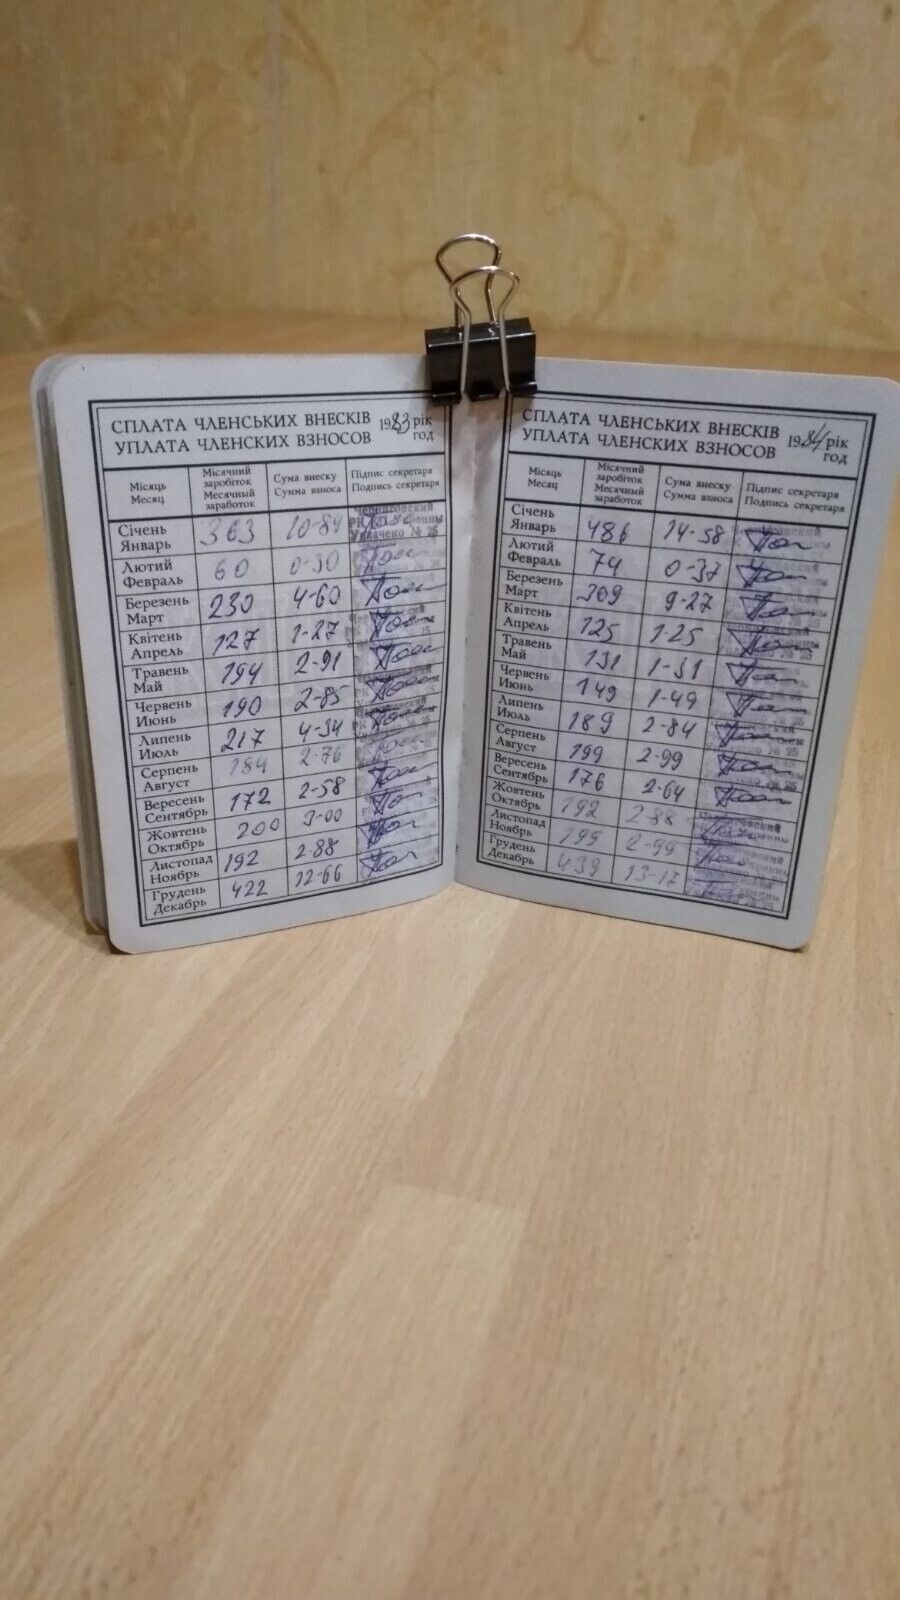 СПЛАТА ЧЛЕНСЬКИХ ВНЕСКІВ 1983 рік
УПЛАТА ЧЛЕНСКИХ ВЗНОСОВ год
Місяць Місячний заробіток Сума внеску Підпис секретаря
Месяц Месячный заработок Сумма взноса Подпись секретаря
Січень
Январь 363 10-84
Уплачено № 25
Лютий
Февраль 60 0-30
Березень
Март 230 4-60
Квітень
Апрель 127 1-27
Травень
Май 194 2-91
Червень
Июнь 190 2-85
Липень
Июль 217 4-34
Серпень
Август 184 2-76
Вересень
Сентябрь 172 2-58
Жовтень
Октябрь 200 3-00
Листопад
Ноябрь 192 2-88
Грудень
Декабрь 422 12-66
СПЛАТА ЧЛЕНСЬКИХ ВНЕСКІВ 1984 рік
УПЛАТА ЧЛЕНСКИХ ВЗНОСОВ год
Місяць Місячний заробіток Сума внеску Підпис секретаря
Месяц Месячный заработок Сумма взноса Подпись секретаря
Січень
Январь 486 14-58
Лютий
Февраль 74 0-37
Березень
Март 309 9-27
Квітень
Апрель 125 1-25
Травень
Май 131 1-31
Червень
Июнь 149 1-49
Липень
Июль 189 2-84
Серпень
Август 199 2-99
Вересень
Сентябрь 176 2-64
Жовтень
Октябрь 192 2-88
Листопад
Ноябрь 199 2-99
Грудень
Декабрь 439 13-17